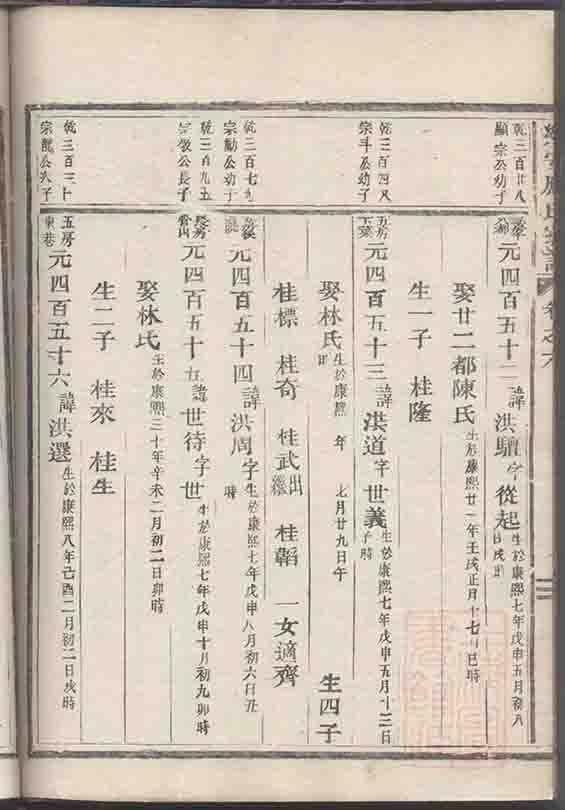 卷之六
乾三百廿八
顯宗公幼子
元四百五十二 諱洪驥字從起 生於康熙七年戊申五月初八
日戌時
娶廿二都陳氏 生於康熙廿一年壬戌正月十七日巳時
生一子 桂隆
乾三百四八
宗斗公幼子
五房
下葉
元四百五十三 諱洪道字世義 生於康熙七年戊申五月十三日
子時
娶林氏 生於康熙 年 七月廿九日午
時
生四子
桂標 桂奇 桂武 出繼 桂韜 一女適齊
乾三百七九
宗勳公幼子
元四百五十四 諱洪周字 生於康熙七年戊申八月初六日丑
時
乾三百九五
宗徵公長子
長房
元四百五十五 諱世待字世 生於康熙七年戊申十月初九卯時
娶林氏 生於康熙三十年辛未二月初二日卯時
生二子 桂來 桂生
乾三百三十
宗龍公次子
五房
東巷
元四百五十六 諱洪選 生於康熙八年己酉二月初二日戌時